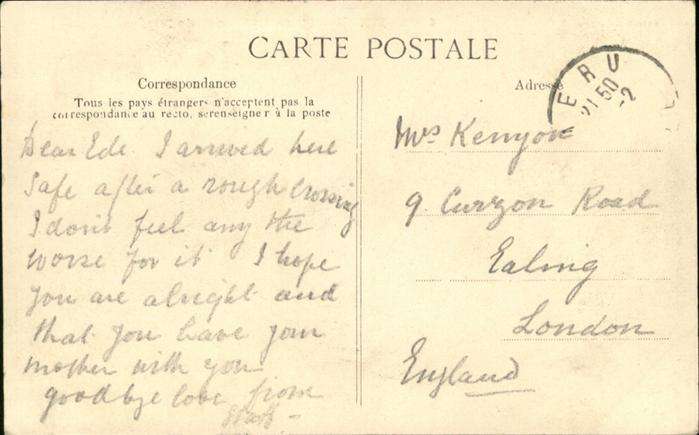 CARTE POSTALE
Correspondance
Tous les pays étrangers n'acceptent pas la
correspondance au recto, se renseigner à la poste
Dear Ede. I arrived here
safe after a rough crossing
I dont feel any the
worse for it I hope
you are alright and
that you have your
mother with you
goodbye love from
Adresse
ERU
21 50
-2
Mrs Kenyon
9 Curzon Road
Ealing
London
England